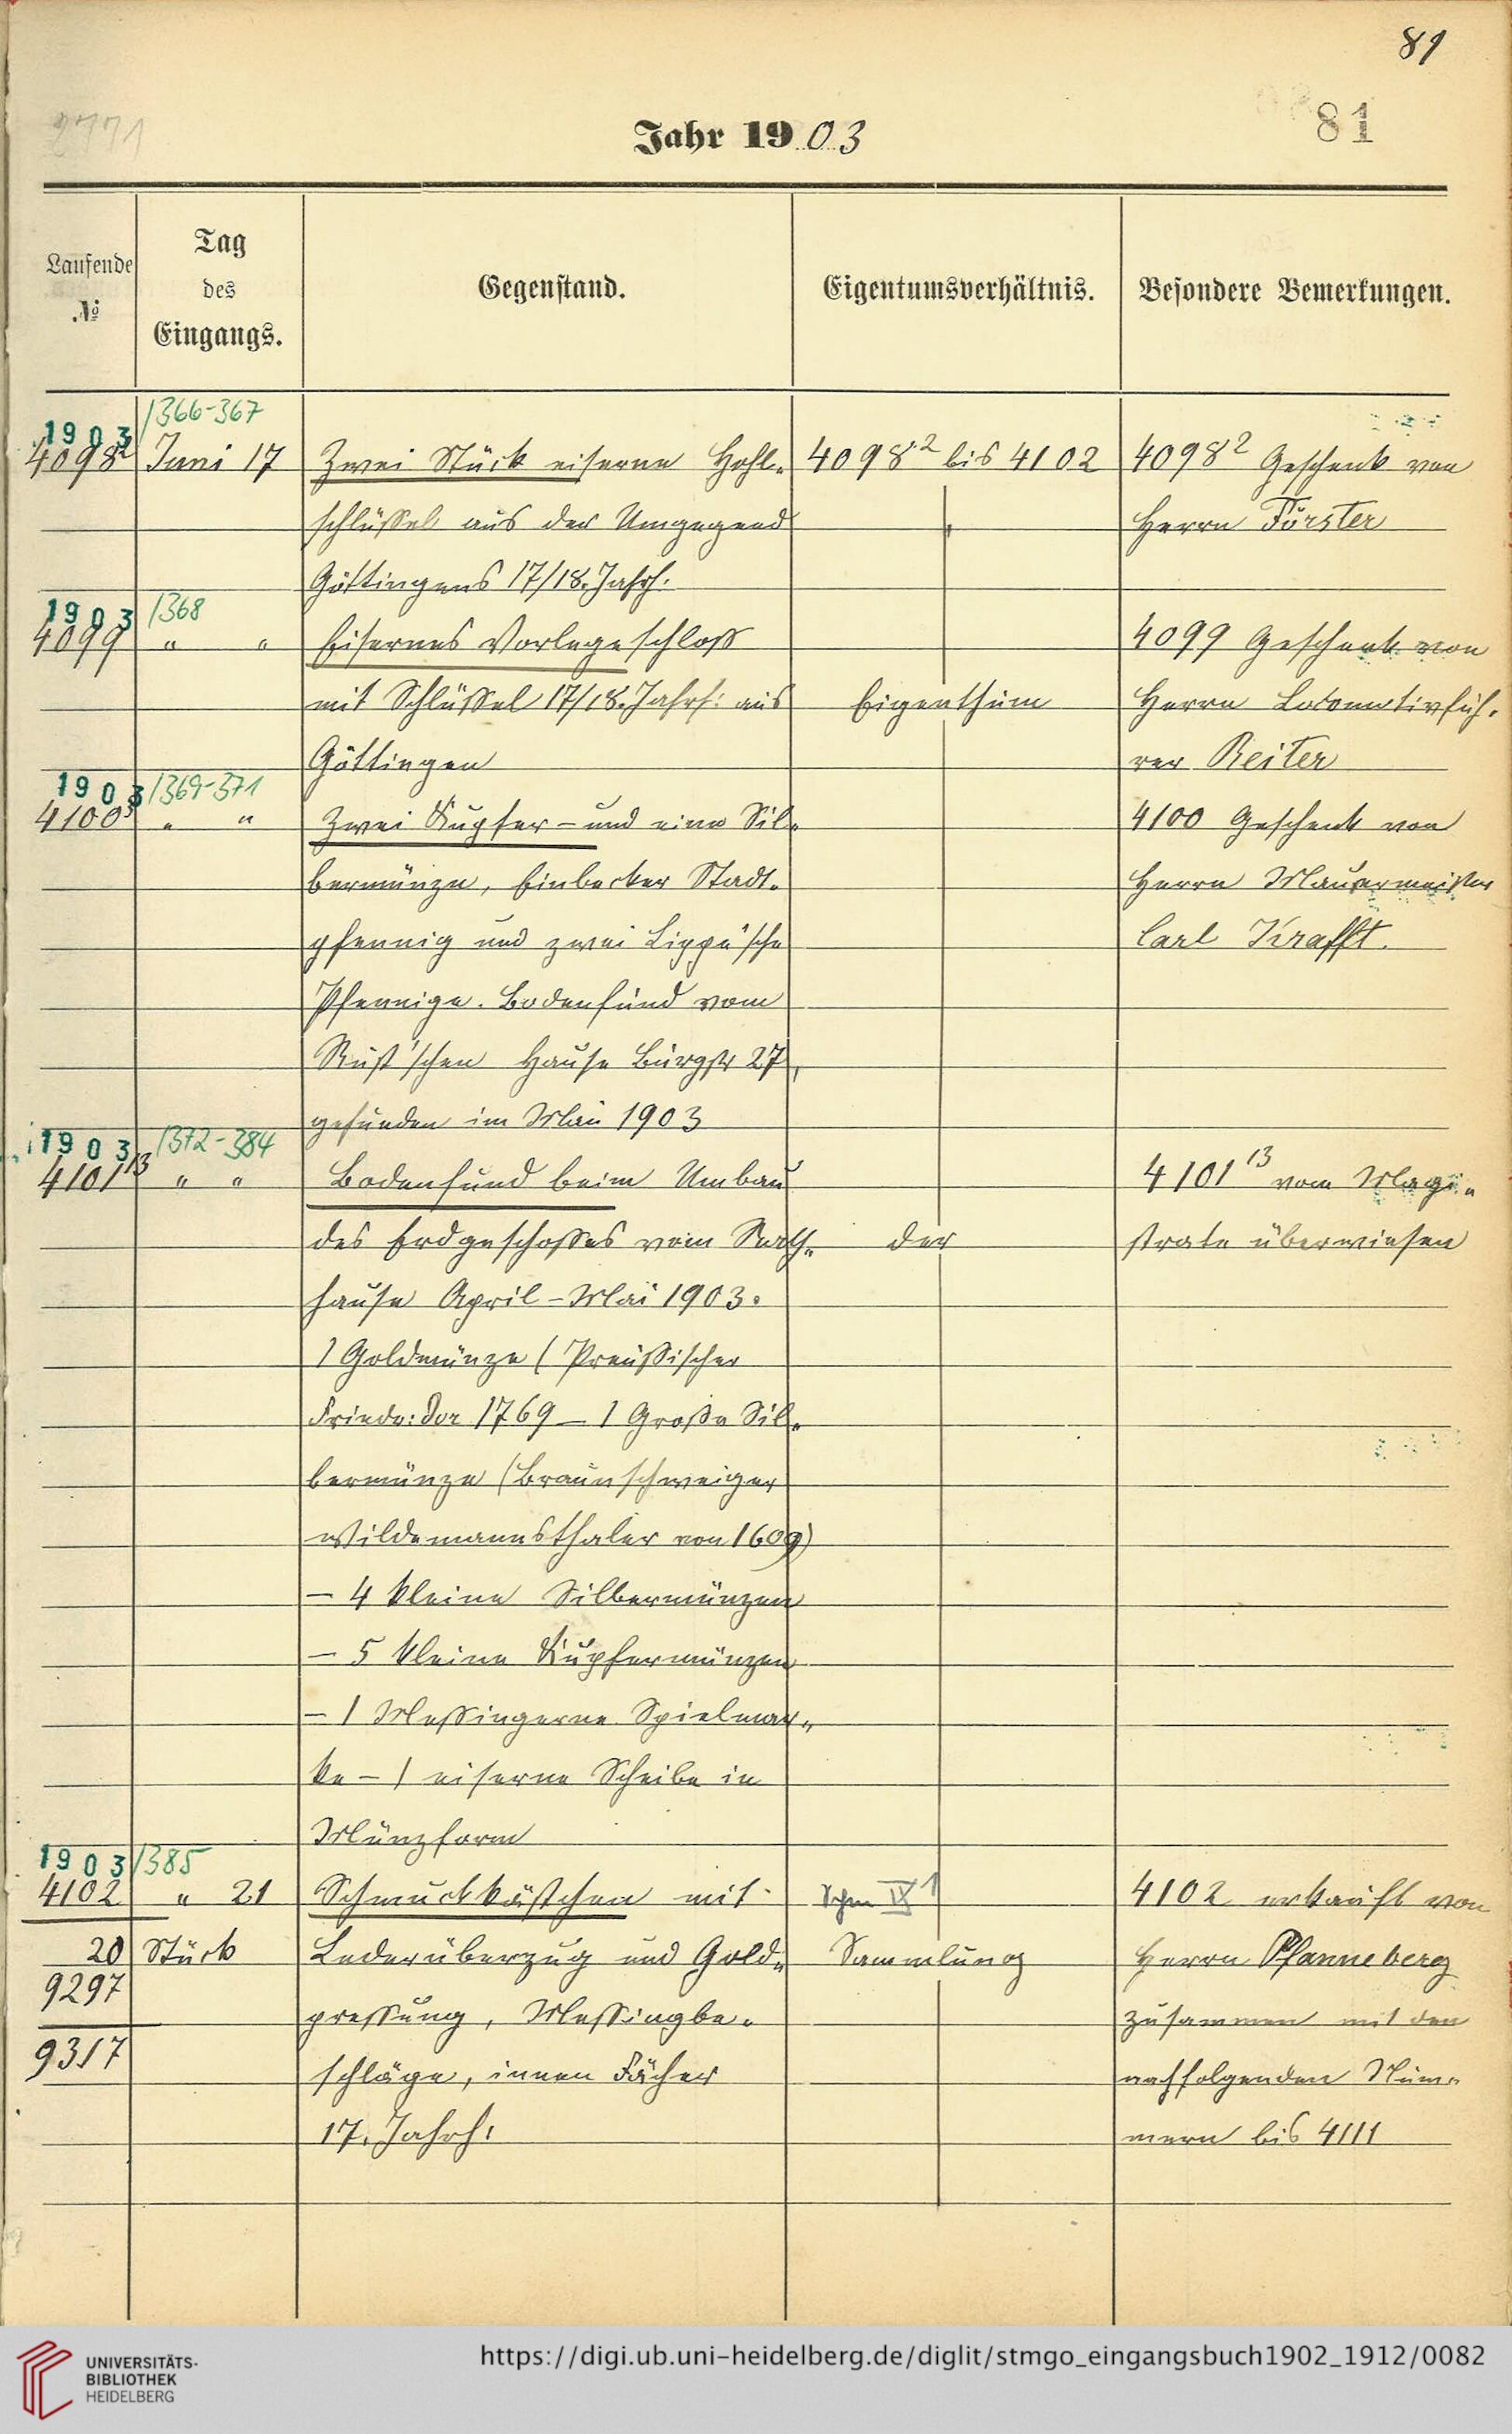 89
81
2771
Jahr 1903
Laufende
№
Tag
des
Eingangs.
Gegenstand.
Eigentumsverhältnis.
Besondere Bemerkungen.
1903 /366-367
4098² Juni 17 Zwei Stück eiserne Hohl- 4098² bis 4102 4098² Geschenk von
schlüssel aus der Umgegend Herrn Förster
Göttingens 17/18. Jahrh.
1903 /368
4099 " " Eisernes Vorlegeschloss 4099 Geschenk von
mit Schlüssel 17/18. Jahrh: aus Eigenthum Herrn Locomotivfüh-
Göttingen rer Reiter
1903 /369-371
4100³ " " Zwei Kupfer- und eine Sil- 4100 Geschenk von
bermünze, Einbecker Stadt- Herrn Maurermeister
pfennig und zwei Lippe'sche Carl Krafft.
Pfennige. Bodenfund vom
Rust'schen Hause Burgstr 27,
gefunden im Mai 1903
1903 /372-384
4101¹³ " " Bodenfund beim Umbau 4101¹³ vom Magi-
des Erdgeschoßes vom Rath- der strate überwiesen
hause April-Mai 1903.
1 Goldmünze (Preußischer
Friedr: Dor 1769 – 1 Große Sil-
bermünze (Braunschweiger
Wildemannsthaler von 1609)
– 4 kleine Silbermünzen
– 5 kleine Kupfermünzen
– 1 Messingerne Spielmar-
ke – 1 eiserne Scheibe in
Münzform
1903 /385
4102 " 21 Schmuckkästchen mit IX 1 4102 erkauft von
20 Stück Lederüberzug und Gold- Sammlung Herrn Pfanneberg
9297 pressung, Messingbe- zusammen mit den
9317 schläge, innen Fächer nachfolgenden Num-
17. Jahrh: mern bis 4111
UNIVERSITÄTS-
BIBLIOTHEK
HEIDELBERG
https://digi.ub.uni-heidelberg.de/diglit/stmgo_eingangsbuch1902_1912/0082